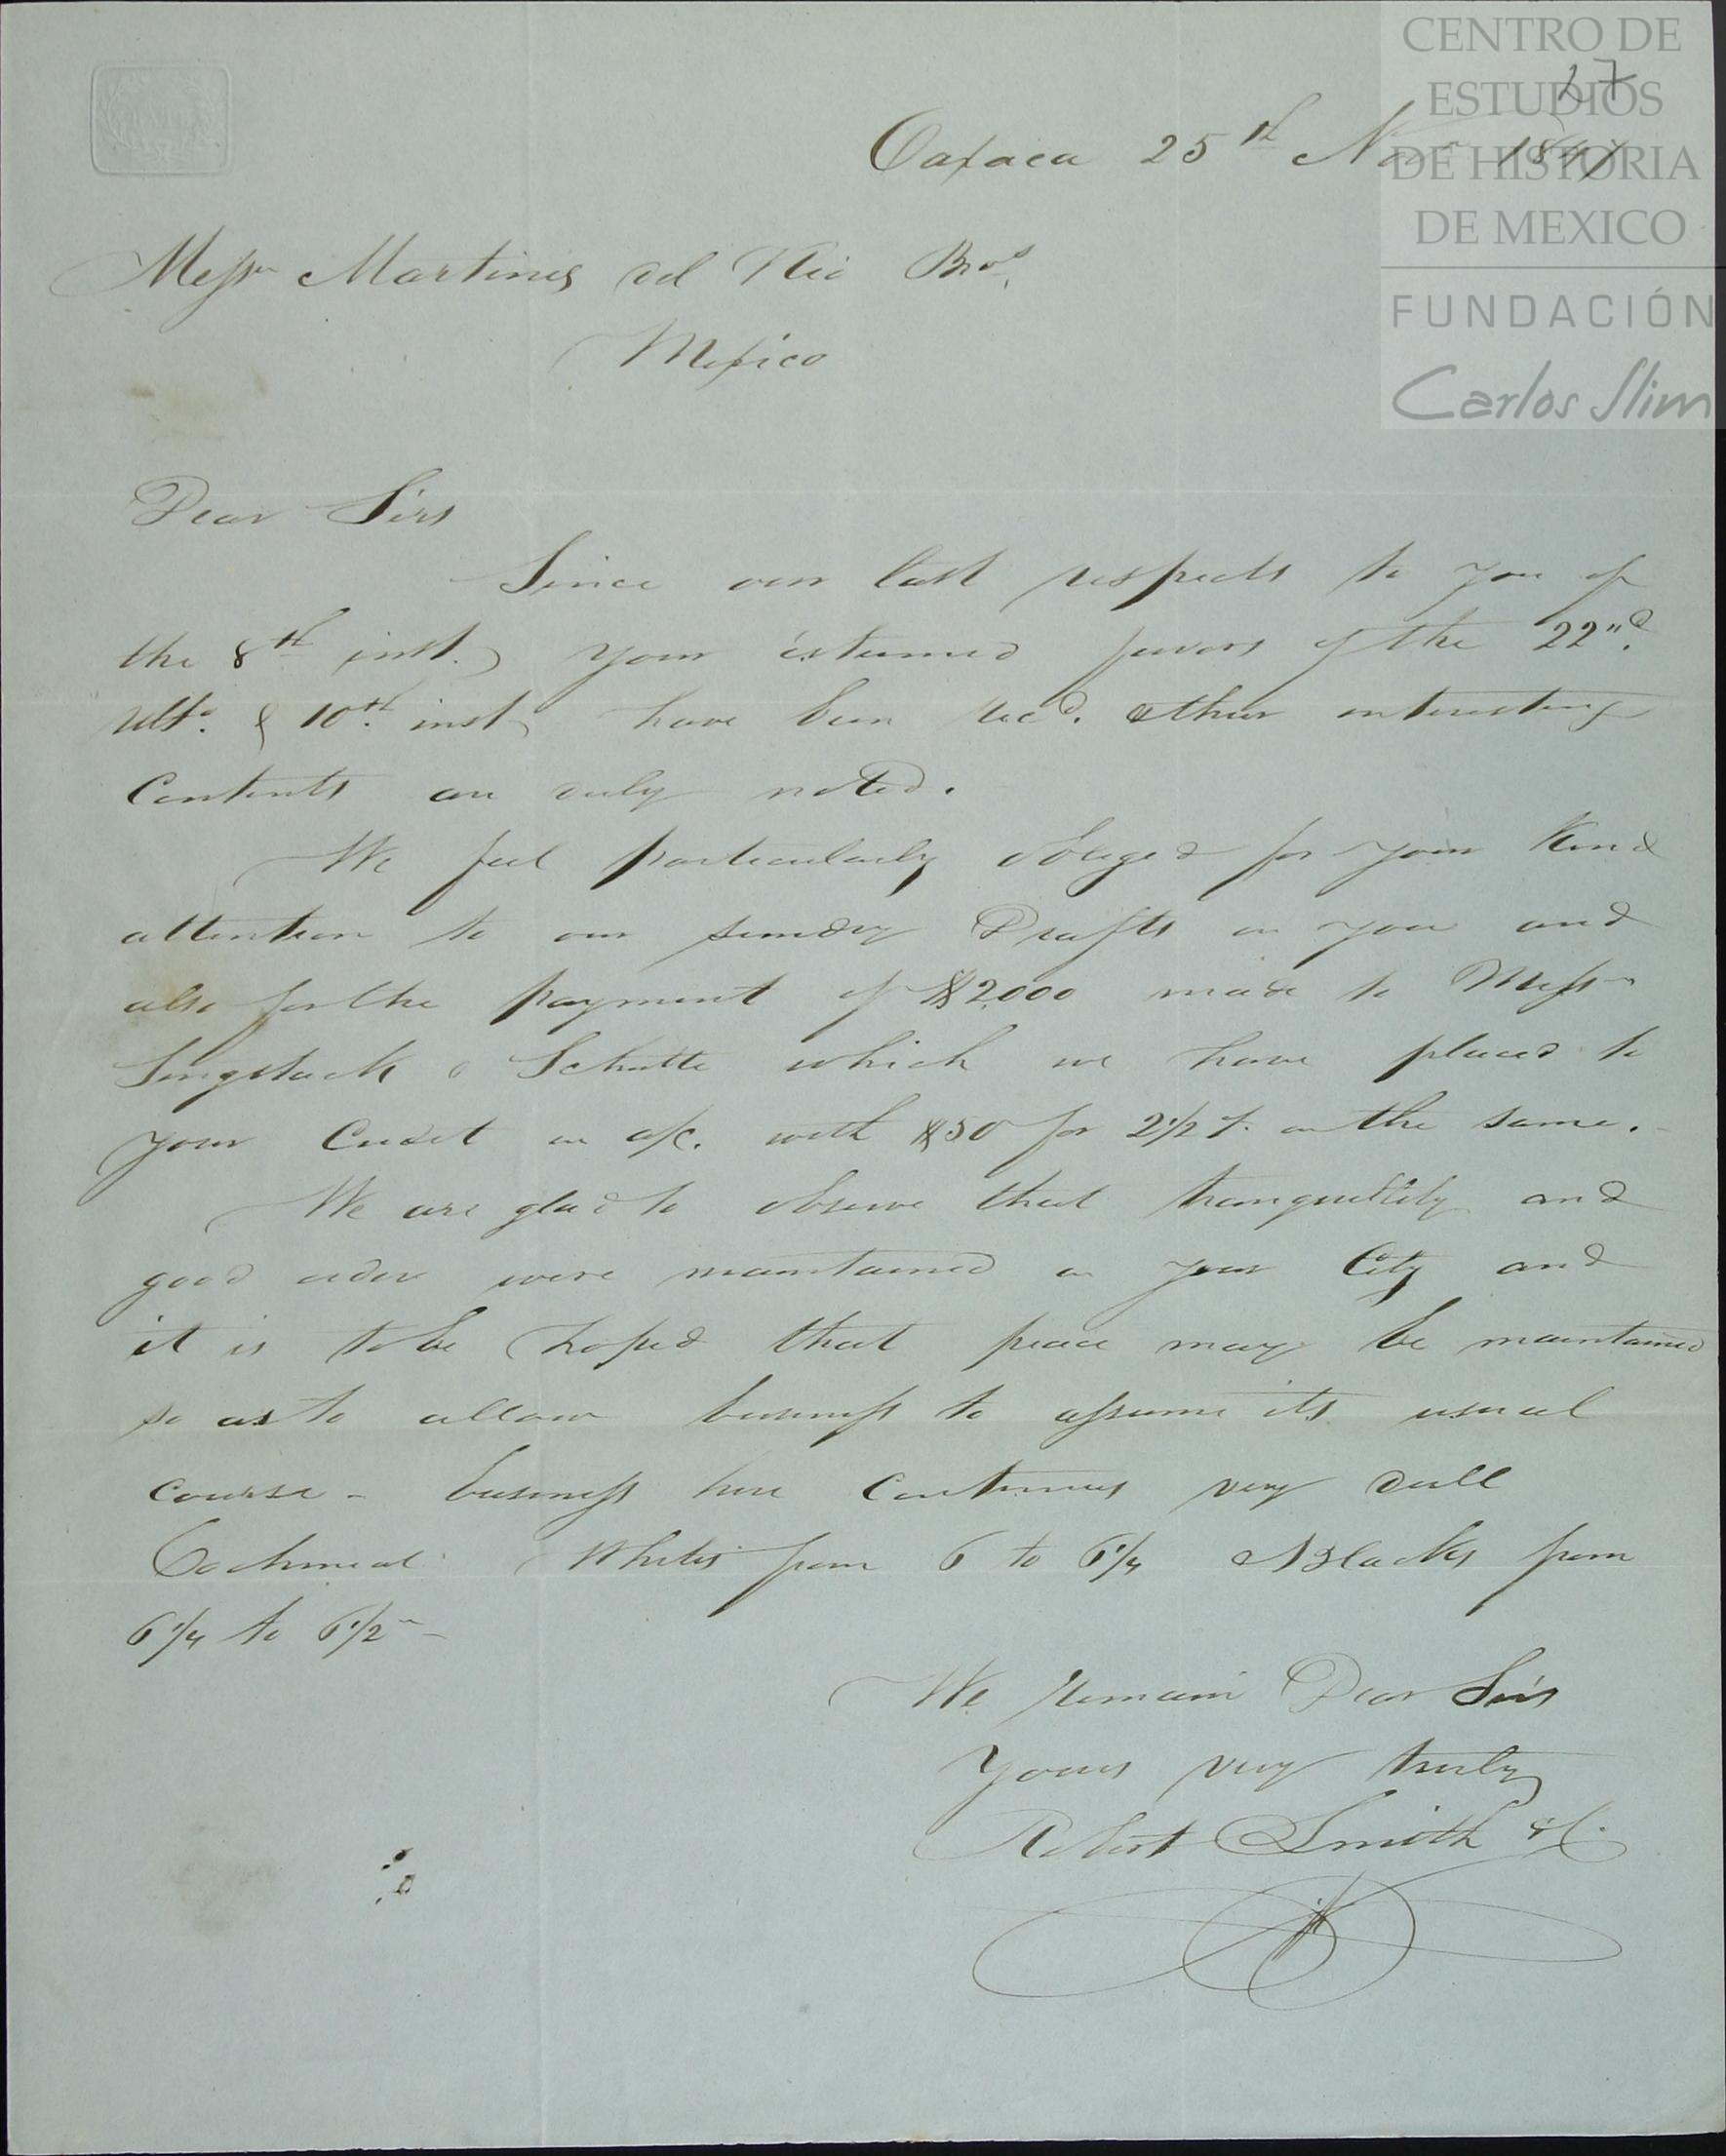 CENTRO DE
ESTUDIOS
DE HISTORIA
DE MEXICO
FUNDACIÓN
Carlos Slim
27
BATH
Oaxaca 25th Nov
Messrs Martines del Rio Bros.
Mexico
Dear Sirs
Since our last respects to you of
the 8th inst. your esteemed favors of the 22nd.
ulto. & 10th. inst have been recd. & their interesting
Contents are duly noted.
We feel particularly obliged for your Kind
attention to our sundry Drafts on you and
also for the payment of $2000 made to Messrs
Schutte which we have placed to
your Credit in a/c. with $50 for 2 1/2 % on the same.
We are glad to observe that tranquillity and
good order were maintained in your City and
it is to be hoped that peace may be maintained
so as to allow business to assume its usual
course - business here Continues very dull
Cochineal Whites from 6 to 6 1/4 & Blacks from
6 1/4 to 6 1/2 -
We remain Dear Sirs
Yours very truly
Robert Smith & C.